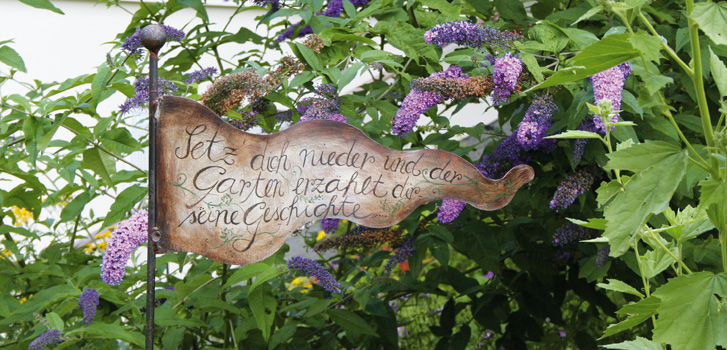 Setz' dich nieder und der
Garten erzählt dir
seine Geschichte...